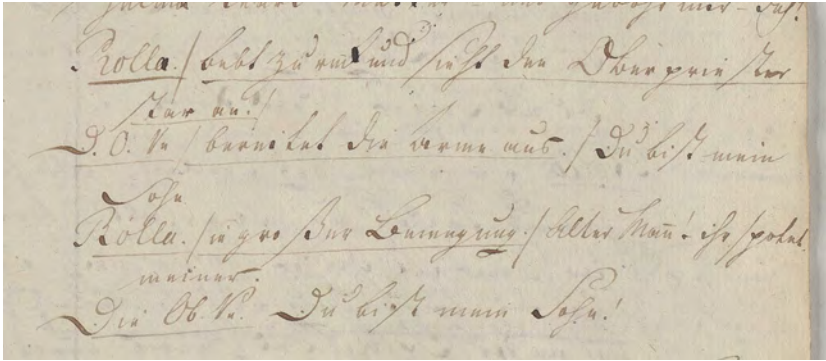 Rolla. / bebt zurück und sieht den Oberpriester
star an. /
D. O. Pr. / bereitet die arme aus. / Du bist mein
Sohn
Rolla. / in großer Bewegung. / Alter Mann! ihr spotet
meiner.
Die Ob. Pr. Du bist mein Sohn!